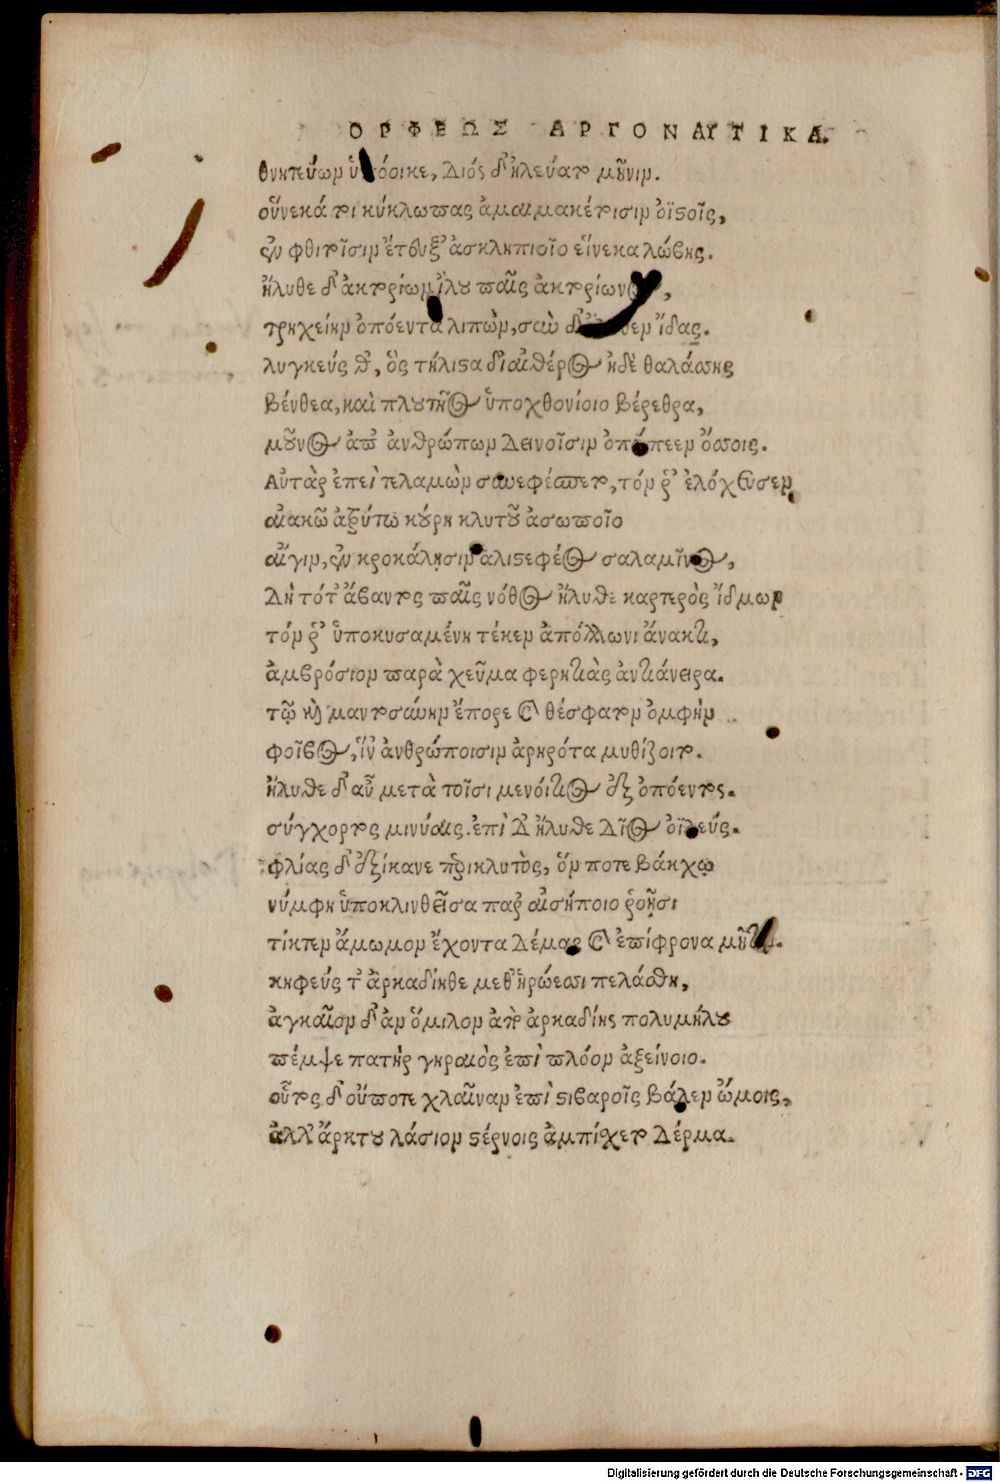 ΟΡΦΕΩΣ ΑΡΓΟΝΑΥΤΙΚΑ.
θνητεύων ὑ όεικε, Διός δ' ἠλεύατο μῆνιν.
οὕνεκά τοι κύκλωπας ἀμαιμακέτοισιν ὀϊστοῖς,
ἐν φθιτοῖσιν ἔτευξ' ἀσκληπιοῖο εἵνεκα λώβης.
ἤλυθε δ' ἀκτορίων ἴλου παῖς ἀκτορίωνος,
τρηχείην ὀπόεντα λιπὼν, σὺν δ' εν ἴδας.
λυγκεύς θ', ὃς τήλιστα δι' αἰθέρος ἠδὲ θαλάσσης
βένθεα, καὶ πλουτῆος ὑποχθονίοιο βέρεθρα,
μοῦνος ἀπ' ἀνθρώπων δεινοῖσιν ὀπόπεεν ὄσσοις.
Αὐτὰρ ἐπεὶ τελαμὼν συνεφέσπετο, τόν ῥ' ἐλόχευσεν
αἰακῶ ἀτρύτω κούρη κλυτοῦ ἀσωποῖο
αἴγιν, ἐν κροκάλησιν ἁλιστεφέος σαλαμῖνος,
Δὴ τότ' ἄβαντος παῖς νόθος ἤλυθε καρτερὸς ἴδμων
τόν ῥ' ὑποκυσαμένη τέκεν ἀπόλλωνι ἄνακτι,
ἀμβρόσιον παρὰ χεῦμα φερητιὰς ἀντιάνειρα.
τῷ καὶ μαντοσύνην ἔπορε καὶ θέσφατον ὀμφὴν
φοῖβος, ἵν' ἀνθρώποισιν ἀρηρότα μυθίζοιτο.
ἤλυθε δ' αὖ μετὰ τοῖσι μενοίτιος ἐξ ὀπόεντος.
σύγχορτος μινύαις. ἐπὶ δ' ἤλυθε δῖος ὀϊλεύς.
φλίας δ' ἐξίκανε περικλυτὸς, ὅν ποτε βάκχῳ
νύμφη ὑποκλινθεῖσα παρ' αἰσήποιο ῥοῇσι
τίκτεν ἄμωμον ἔχοντα δέμας καὶ ἐπίφρονα μῆτιν.
κηφεύς τ' ἀρκαδίηθε μεθ' ἡρώεσσι πελάσθη,
ἀγκαῖον δ' ἀν ὅμιλον ἀπ' ἀρκαδίης πολυμήλου
πέμψε πατὴρ γηραιὸς ἐπὶ πλόον ἀξείνοιο.
οὗτος δ' οὔποτε χλαῖναν ἐπὶ στιβαροῖς βάλεν ὤμοις,
ἀλλ' ἄρκτου λάσιον στέρνοις ἀμπίχετο δέρμα.
Digitalisierung gefördert durch die Deutsche Forschungsgemeinschaft - DFG